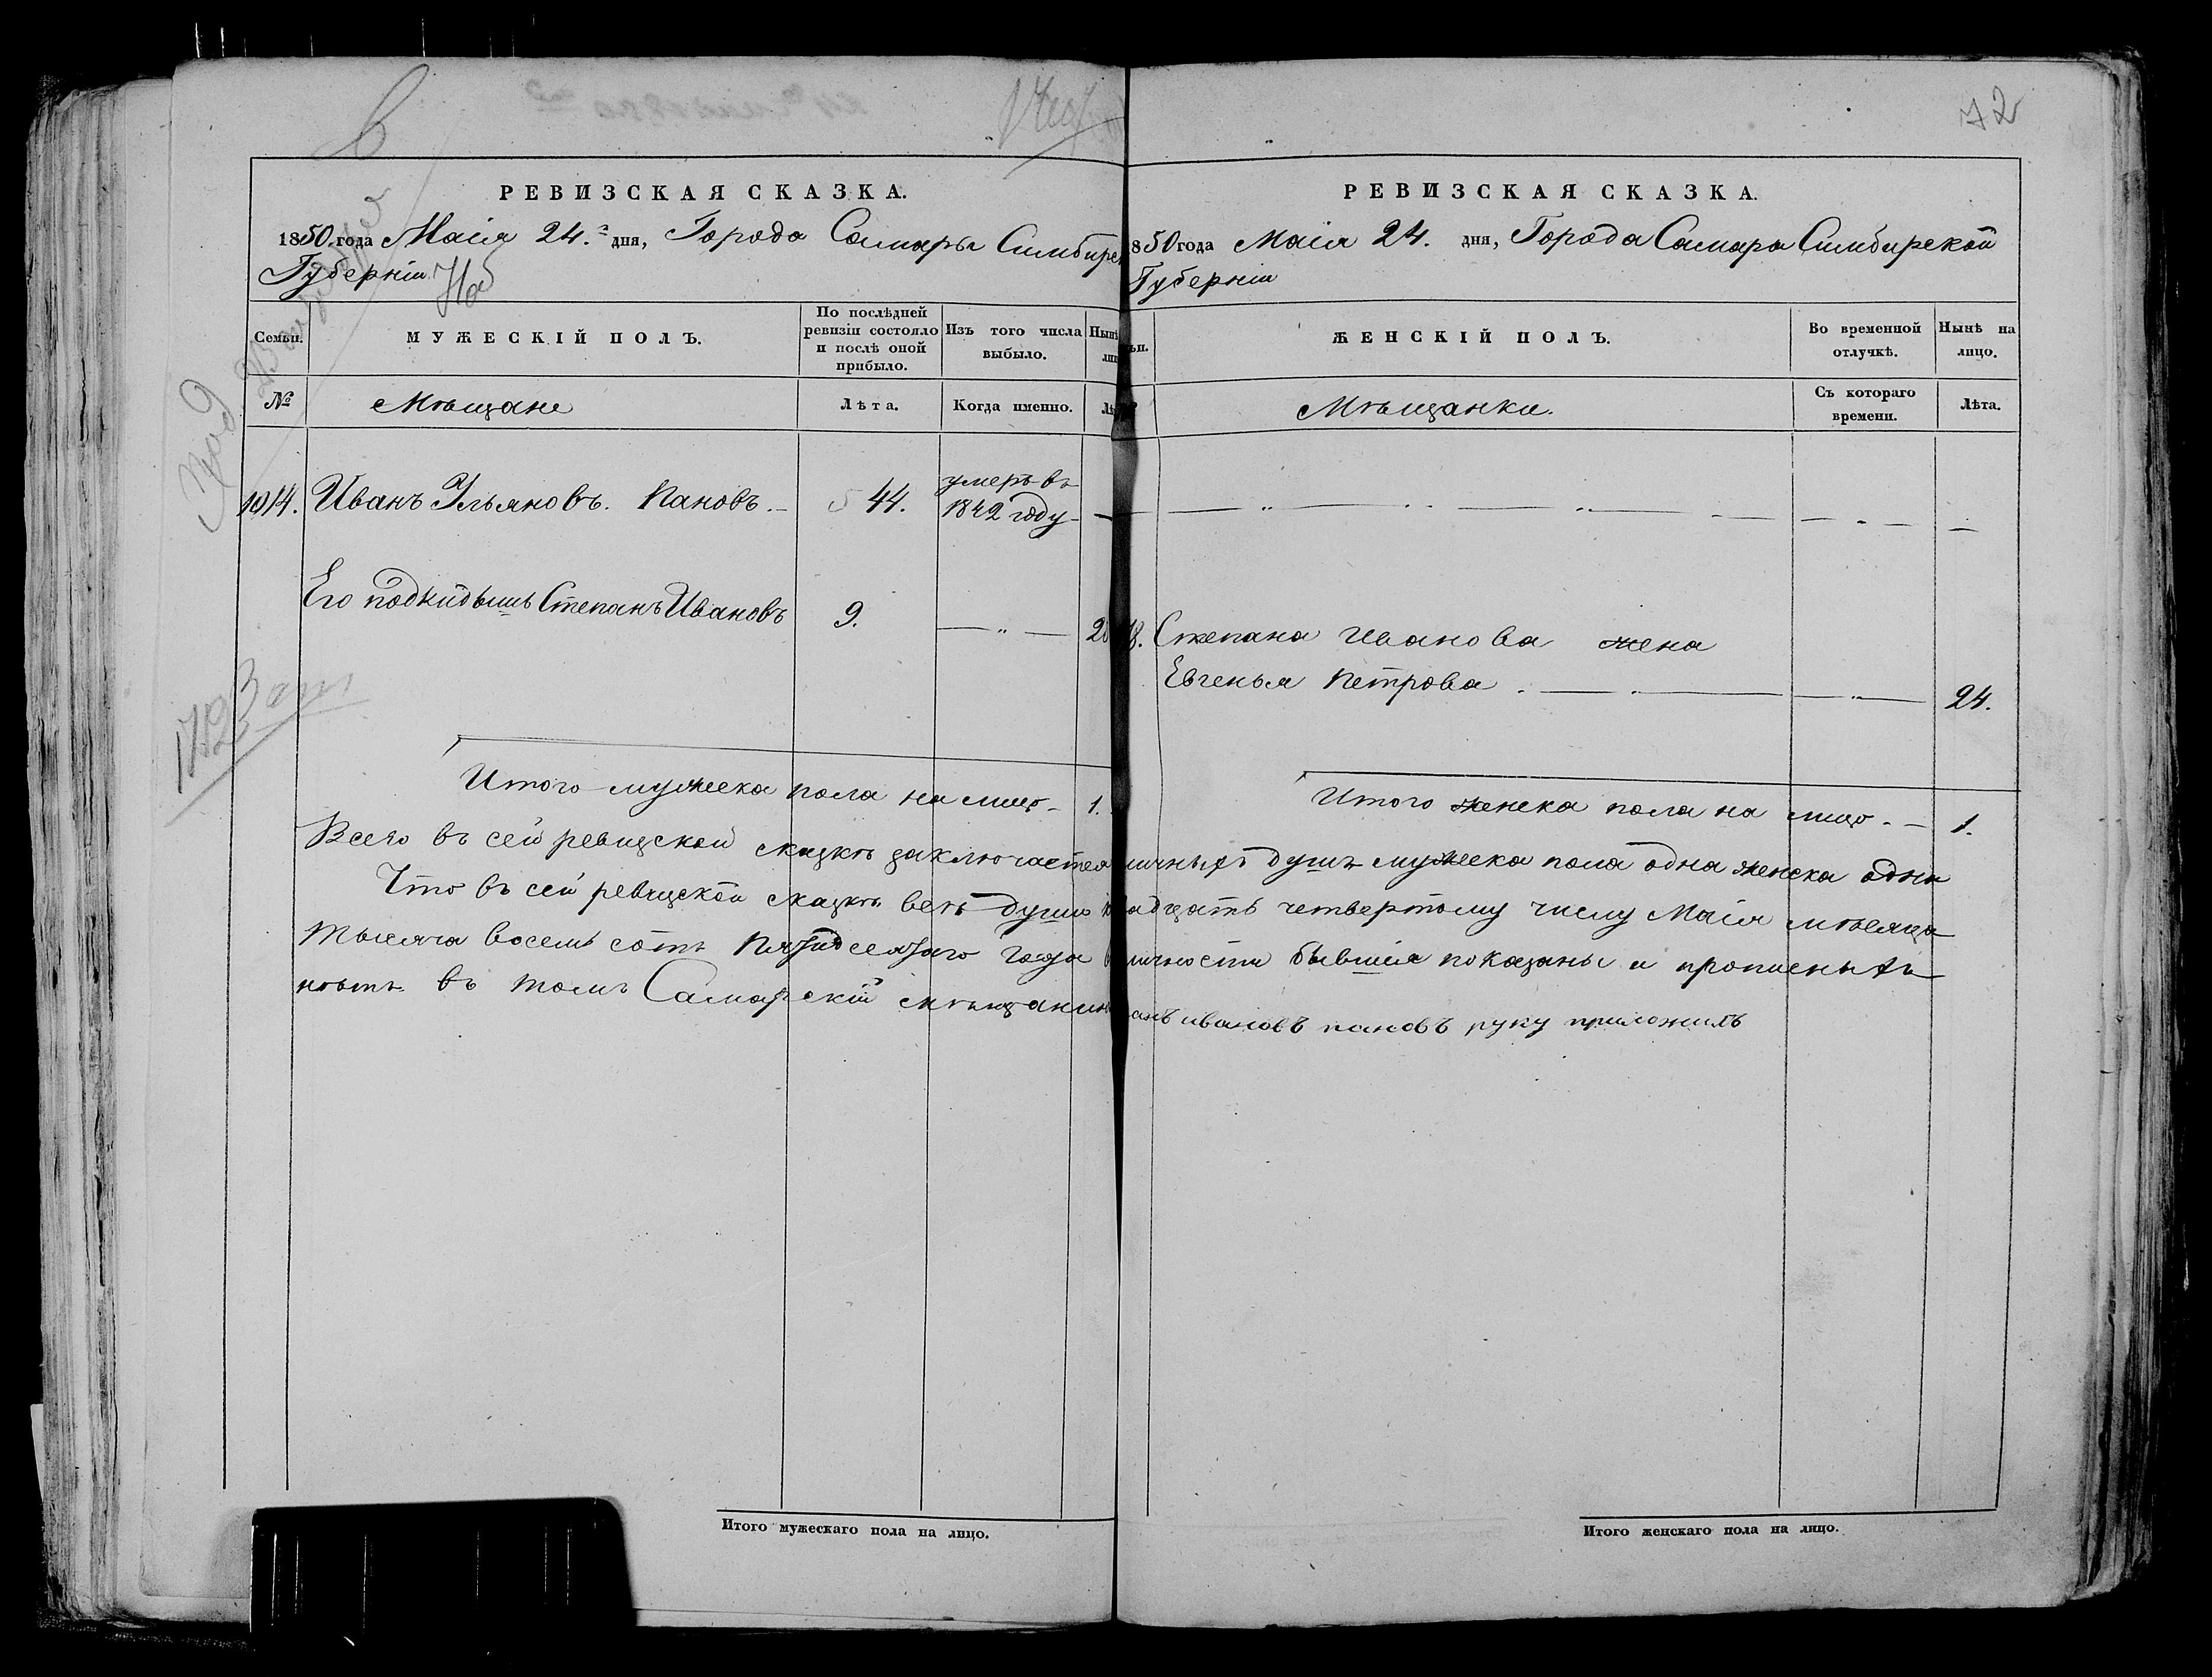 72
РЕВИЗСКАЯ СКАЗКА.
1850 года Маія 24.го дня, Города Самары Симбирс
Губерніи
Семьи.
МУЖЕСКІЙ ПОЛЪ.
По послѣдней ревизіи состояло и послѣ оной прибыло.
Изъ того числа выбыло.
Нынѣ
№
Мѣщане
Лѣта.
Когда именно.
1014. Иванъ Ульяновъ. Пановъ. 44. умеръ въ
1842 году
Его подкидышь Степанъ Ивановъ 9. 20
Итого мужеска пола на лицо 1.
Всего въ сей ревизской сказкѣ заключается
Что въ сей ревизской сказкѣ всѣ души
тысяча восемь сотъ пятидесятаго года
нѣтъ въ томъ Самарскій мѣщанин
РЕВИЗСКАЯ СКАЗКА.
850 года Маія 24. дня, Города Самары Симбирской
Губерніи
ЖЕНСКІЙ ПОЛЪ.
Во временной отлучкѣ.
Нынѣ на лицо.
Мѣщанки.
Съ котораго времени.
Лѣта.
Степана Иванова жена
Евгенья Петрова 24.
Итого женска пола на лицо 1.
личныхъ душъ мужеска пола одна женска одна
адцать четвертому числу Маія мѣсяца
личности бывшія показаны и прописныхъ
анъ ивановъ пановъ руку приложилъ
Итого мужескаго пола на лицо.
Итого женскаго пола на лицо.